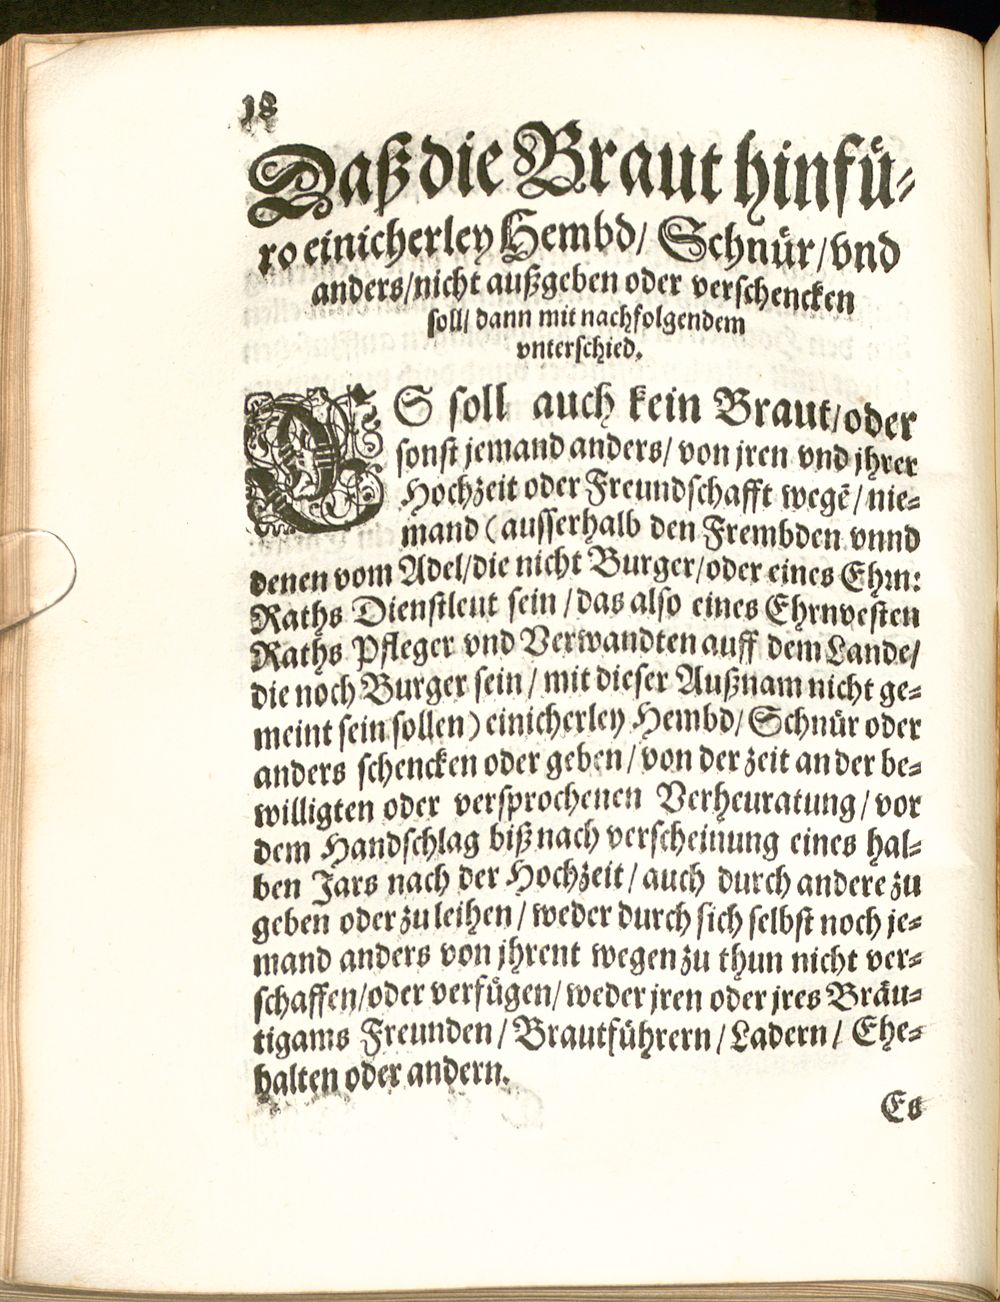 18
Daß die Braut hinfü-
ro einicherley Hembd/ Schnür/ vnd
anders/ nicht außgeben oder verschencken
soll/ dann mit nachfolgendem
vnterschied.
ES soll auch kein Braut/ oder
sonst jemand anders/ von jren vnd jhrer
Hochzeit oder Freundschafft wegē/ nie-
mand (ausserhalb den Frembden vnnd
denen vom Adel/ die nicht Burger/ oder eines Ehrn:
Raths Dienstleut sein/ das also eines Ehrnvesten
Raths Pfleger vnd Verwandten auff dem Lande/
die noch Burger sein/ mit dieser Außnam nicht ge-
meint sein sollen) einicherley Hembd/ Schnür oder
anders schencken oder geben/ von der zeit an der be-
willigten oder versprochenen Verheuratung/ vor
dem Handschlag biß nach verscheinung eines hal-
ben Jars nach der Hochzeit/ auch durch andere zu
geben oder zu leihen/ weder durch sich selbst noch je-
mand anders von jhrent wegen zu thun nicht ver-
schaffen/ oder verfügen/ weder jren oder jres Bräu-
tigams Freunden/ Brautführern/ Ladern/ Ehe-
halten oder andern.
Es